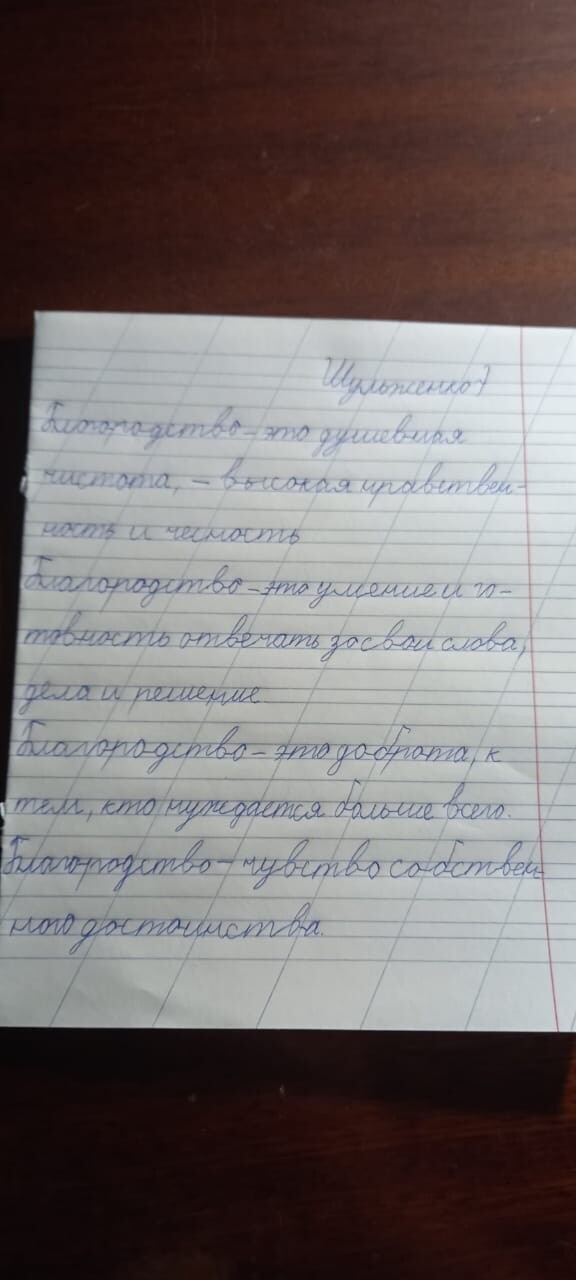 Шульженко
Благородство - это душевная
чистота, - высокая нравствен-
ность и чесность
Благородство - это умение и го-
товность отвечать за свои слова,
дела и решение.
Благородство - это доброта, к
тем, кто нуждается больше всего.
Благородство - чувство собствен-
ного достоинства.